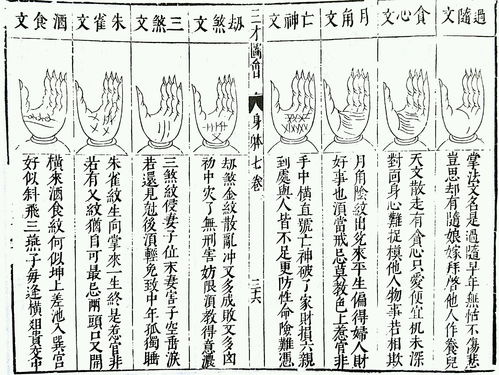 過隨文
掌法文名是過隨早年無怙不傷悲
豈思却有隨娘嫁拜啓他人作養兒
貪心文
天文散走有貪心只愛便宜机未深
對面身心難捉模他人物事若相欺
月角文
月角陰紋出兌來平生偏得婦人財
好事也須當戒忌莫教色上惹官非
亡神文
手中橫直號亡神破了家財損六親
到處與人皆不足更防性命險難憑
三才圖會
身体七卷
三六
劫煞文
劫煞金紋散亂冲又多成敗又多凶
初中灾了無刑害妨限須教得意濃
三煞文
三煞紋侵妻子位末妻害子空垂淚
若還見尅後須輕免致中年孤獨睡
朱雀文
朱雀紋生向掌來一生終是惹官非
若有又紋猶自可最忌兩頭口又開
酒食文
橫來酒食紋何似坤上差池入巽宮
好似斜飛三燕子每逢橫俎貴交中